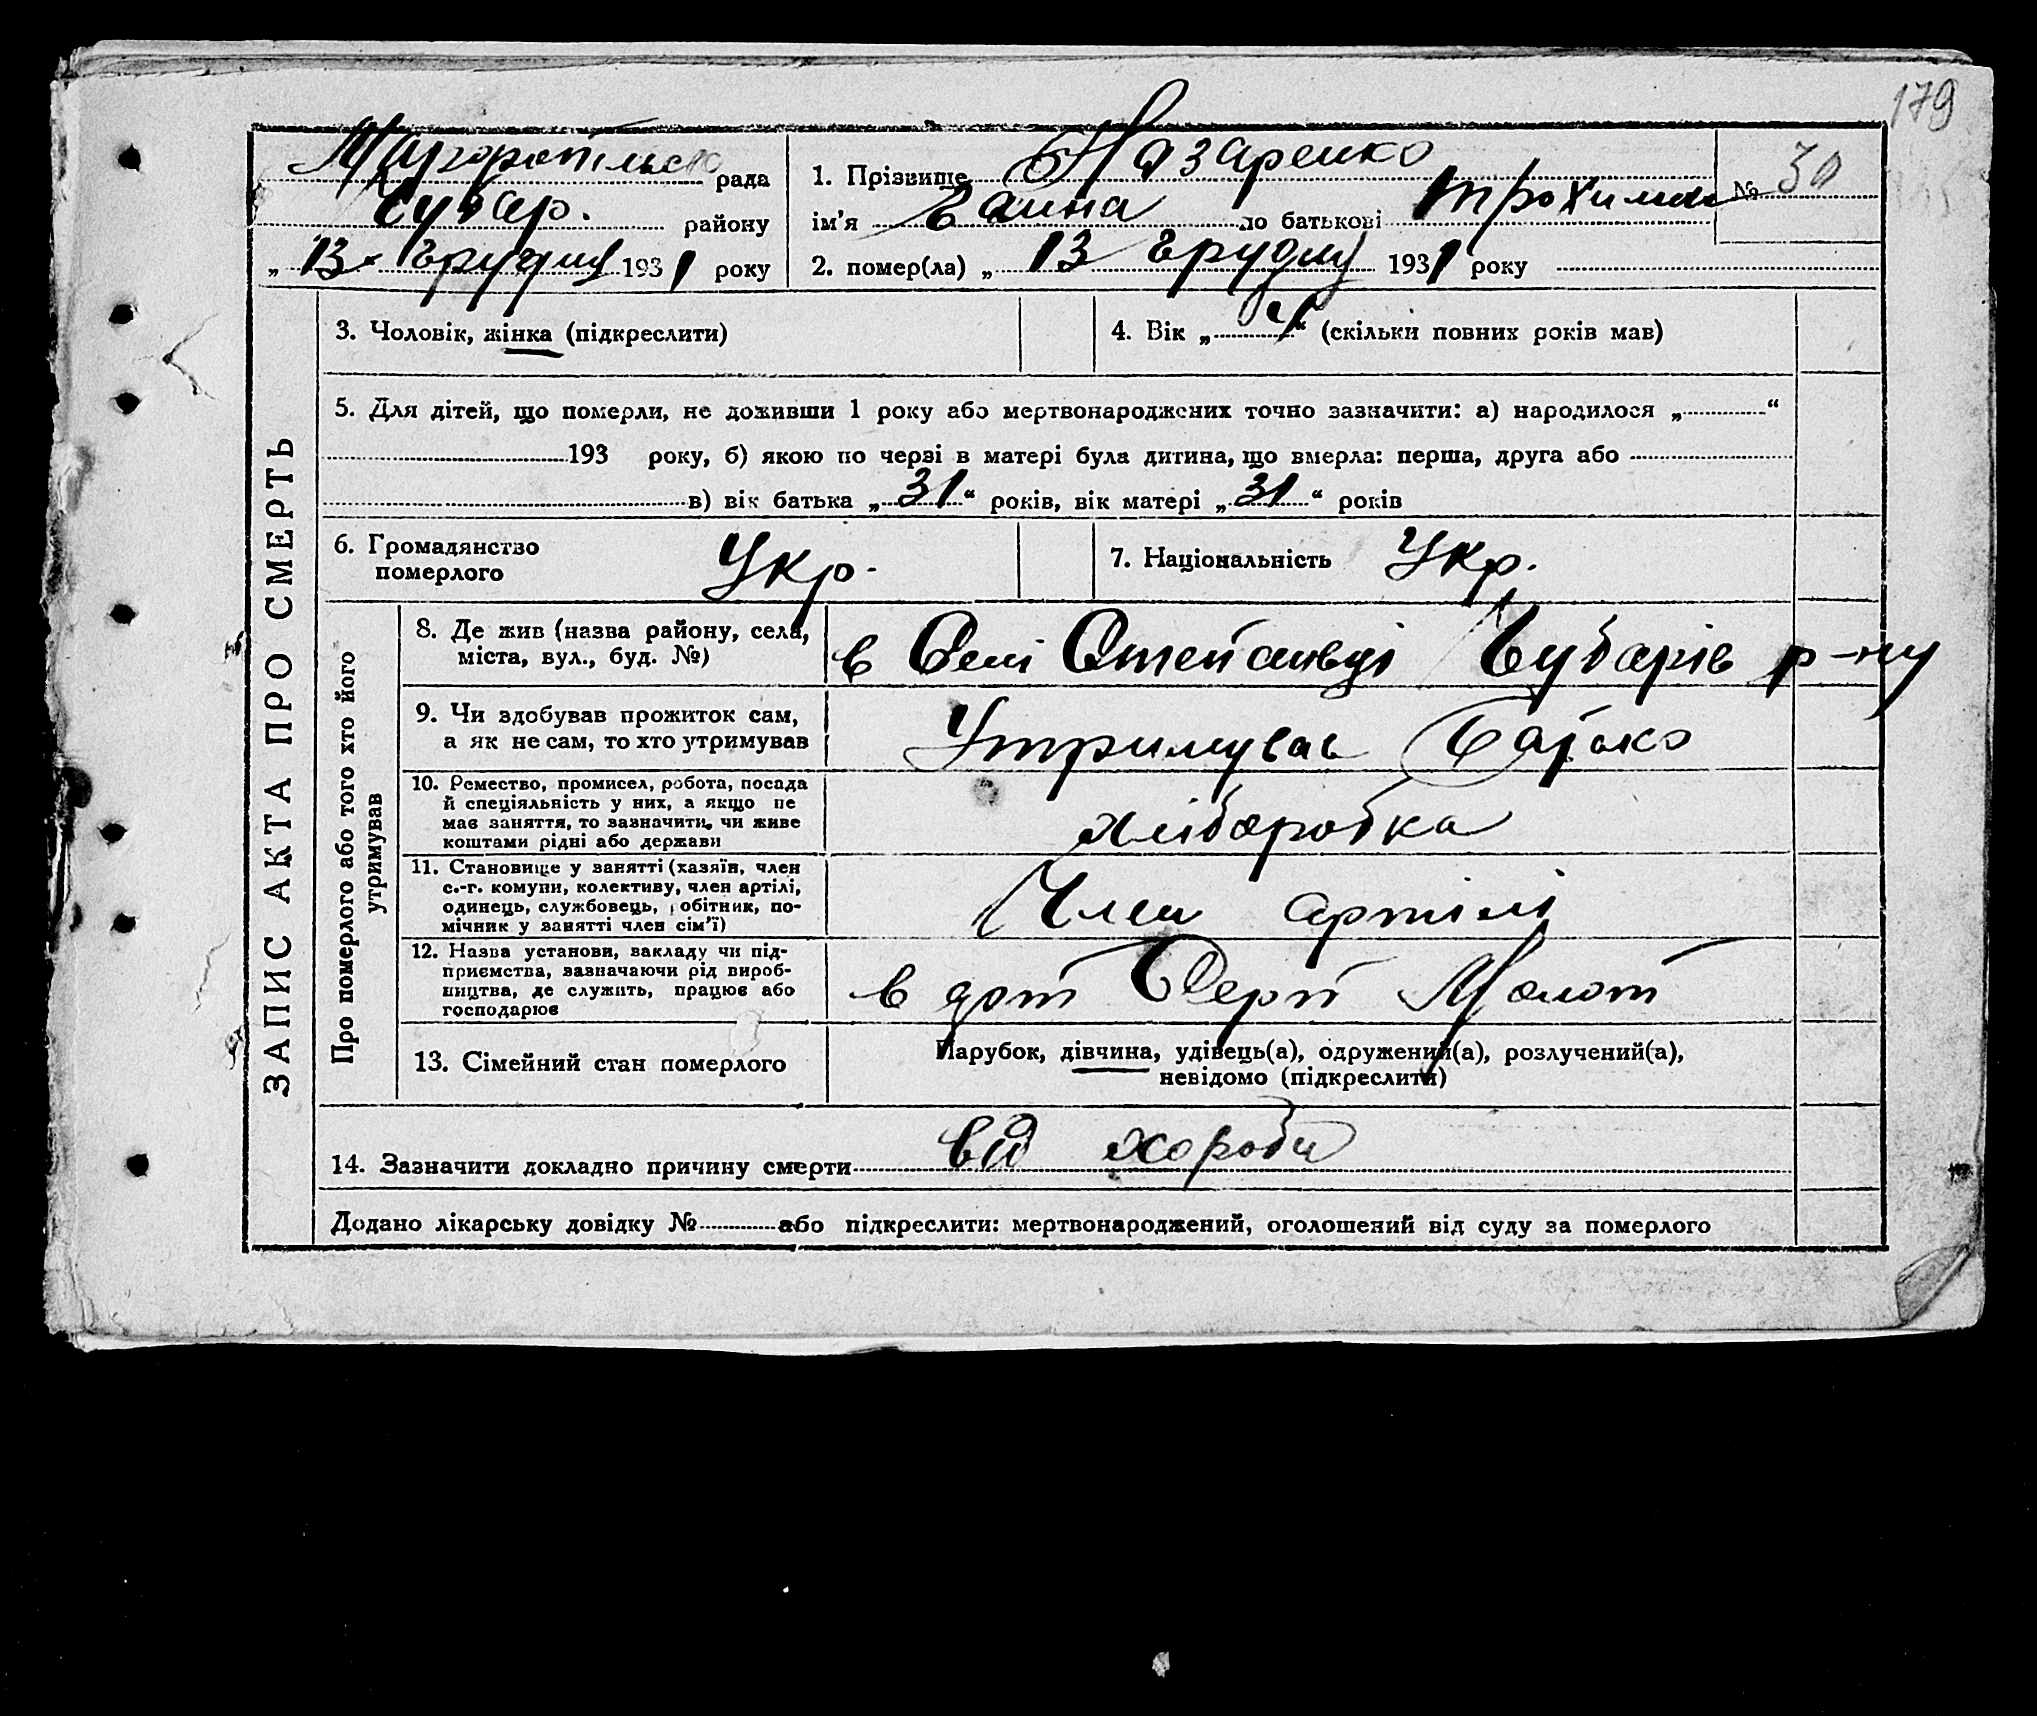 179
рада
1. Прізвище Назаренко
№ 30
Чубар. району
ім'я Ганна по батькові Трохимів
„13" грудня 1931 року
2. помер(ла) „13 грудня 1931 року
ЗАПИС АКТА ПРО СМЕРТЬ
3. Чоловік, жінка (підкреслити)
4. Вік „ " (скільки повних років мав)
5. Для дітей, що померли, не доживши 1 року або мертвонароджених точно зазначити: а) народилося „ "
193 року, б) якою по черзі в матері була дитина, що вмерла: перша, друга або
в) вік батька „31" років, вік матері „31" років
6. Громадянство
померлого Укр.
7. Національність Укр.
Про померлого або того хто його
утримував
8. Де жив (назва району, села,
міста, вул., буд. №)
в Селі Степанівці Чубарів р-ну
9. Чи здобував прожиток сам,
а як не сам, то хто утримував
Утримував Батько
10. Ремество, промисел, робота, посада
й спеціяльність у них, а якщо не
має заняття, то зазначити, чи живе
коштами рідні або держави
хліборобка
11. Становище у занятті (хазяїн, член
с.-г. комуни, колективу, член артілі,
одинець, службовець, робітник, по-
мічник у занятті член сім'ї)
Член артілі
12. Назва установи, закладу чи під-
приємства, зазначаючи рід вироб-
ництва, де служить, працює або
господарює
в Серп Молот
13. Сімейний стан померлого
Парубок, дівчина, удівець(а), одружений(а), розлучений(а),
невідомо (підкреслити)
14. Зазначити докладно причину смерти від хороби
Додано лікарську довідку № або підкреслити: мертвонароджений, оголошений від суду за померлого